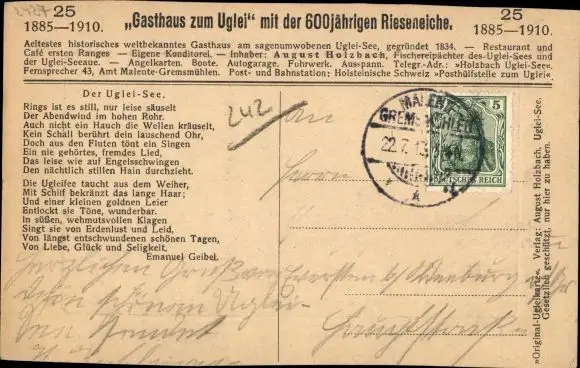 2427
25 „Gasthaus zum Uglei“ mit der 600jährigen Rieseneiche. 25
1885—1910. 1885—1910.
Aeltestes historisches weltbekanntes Gasthaus am sagenumwobenen Uglei-See, gegründet 1834. — Restaurant und
Café ersten Ranges — Eigene Konditorei. — Inhaber: August Holzbach, Fischereipächter des-Uglei-Sees und
der Ugleiseeaue. — Angelkarten. Boote. Autogarage. Fuhrwerk. Ausspann. Telegr.-Adr.: »Holzbach Uglei-See«.
Fernsprecher 43, Amt Malente-Gremsmühlen. Post- und Bahnstation: Holsteinische Schweiz »Posthülfstelle zum Uglei«.
Der Uglei-See.
Rings ist es still, nur leise säuselt
Der Abendwind im hohen Rohr.
Auch nicht ein Hauch die Wellen kräuselt,
Kein Schall berührt dein lauschend Ohr,
Doch aus den Fluten tönt ein Singen
Ein nie gehörtes, fremdes Lied,
Das leise wie auf Engelsschwingen
Den nächtlich stillen Hain durchzieht.
Die Ugleifee taucht aus dem Weiher,
Mit Schilf bekränzt das lange Haar;
Und einer kleinen goldnen Leier
Entlockt sie Töne, wunderbar.
In süßen, wehmutsvollen Klagen
Singt sie von Erdenlust und Leid,
Von längst entschwundenen schönen Tagen,
Von Liebe, Glück und Seligkeit.
Emanuel Geibel.
242
An
Herrn
MALENTE-
GREMSMÜHLEN
22.7.13
5
DEUTSCHES REICH
»Original-Ugleikarte«. Verlag: August Holzbach, Uglei-See.
Gesetzlich geschützt, nur hier zu haben.
Herzlichen Gruß von